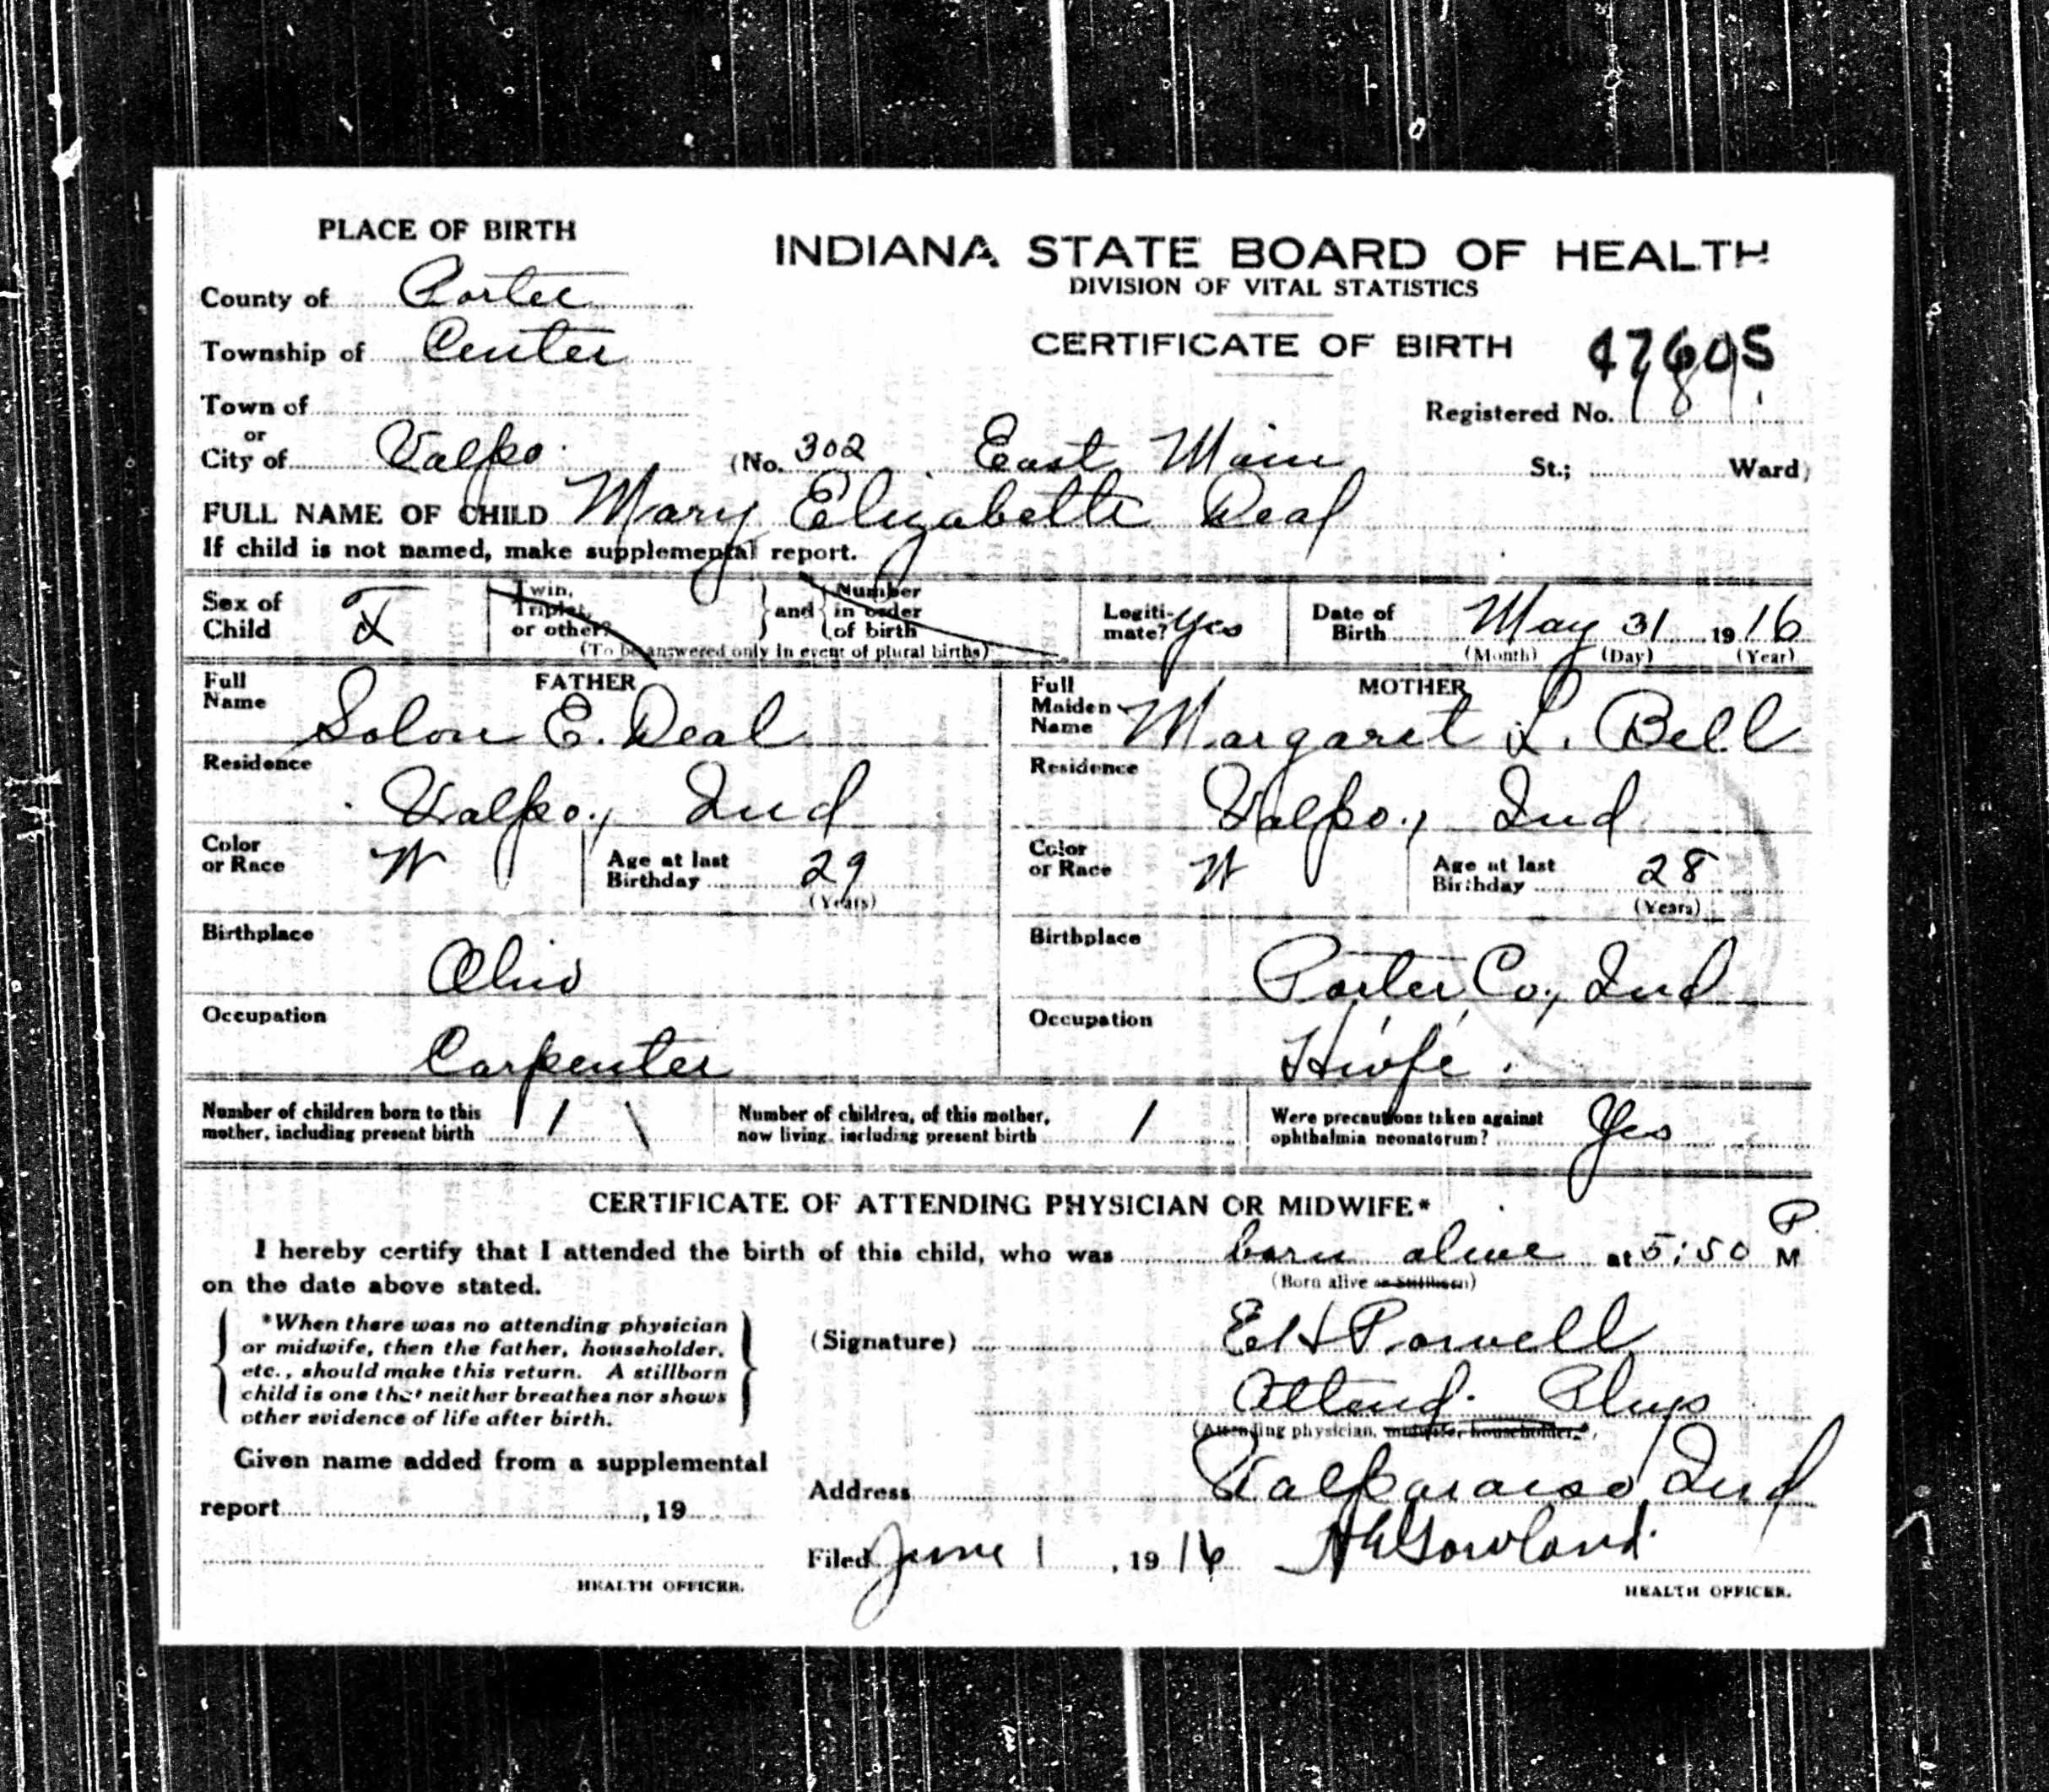 PLACE OF BIRTH
INDIANA STATE BOARD OF HEALTH
DIVISION OF VITAL STATISTICS
CERTIFICATE OF BIRTH 47605
County of Porter
Township of Center
Town of
Registered No. 181
or
City of Valpo. (No. 302 East Main St.; Ward)
FULL NAME OF CHILD Mary Elizabeth Deal
If child is not named, make supplemental report.
Sex of Child F
Twin, Triplet, or other? } and { Number in order of birth
(To be answered only in event of plural births)
Legiti-mate? Yes
Date of Birth May 31 1916
(Month) (Day) (Year)
FATHER
Full Name Solon E. Deal
Residence Valpo., Ind
Color or Race W
Age at last Birthday 29
(Years)
Birthplace Ohio
Occupation Carpenter
MOTHER
Full Maiden Name Margaret L. Bell
Residence Valpo., Ind
Color or Race W
Age at last Birthday 28
(Years)
Birthplace Porter Co., Ind
Occupation Hwife.
Number of children born to this mother, including present birth 1
Number of children, of this mother, now living, including present birth 1
Were precautions taken against ophthalmia neonatorum? Yes
CERTIFICATE OF ATTENDING PHYSICIAN OR MIDWIFE*
I hereby certify that I attended the birth of this child, who was born alive at 5:50 P. M
(Born alive or Stillborn)
on the date above stated.
*When there was no attending physician
or midwife, then the father, householder,
etc., should make this return. A stillborn
child is one that neither breathes nor shows
other evidence of life after birth.
(Signature) E H Powell
Attend. Phys
(Attending physician, midwife, householder.*)
Given name added from a supplemental
report , 19
HEALTH OFFICER.
Address Valparaiso, Ind
Filed June 1, 1916
HEALTH OFFICER.